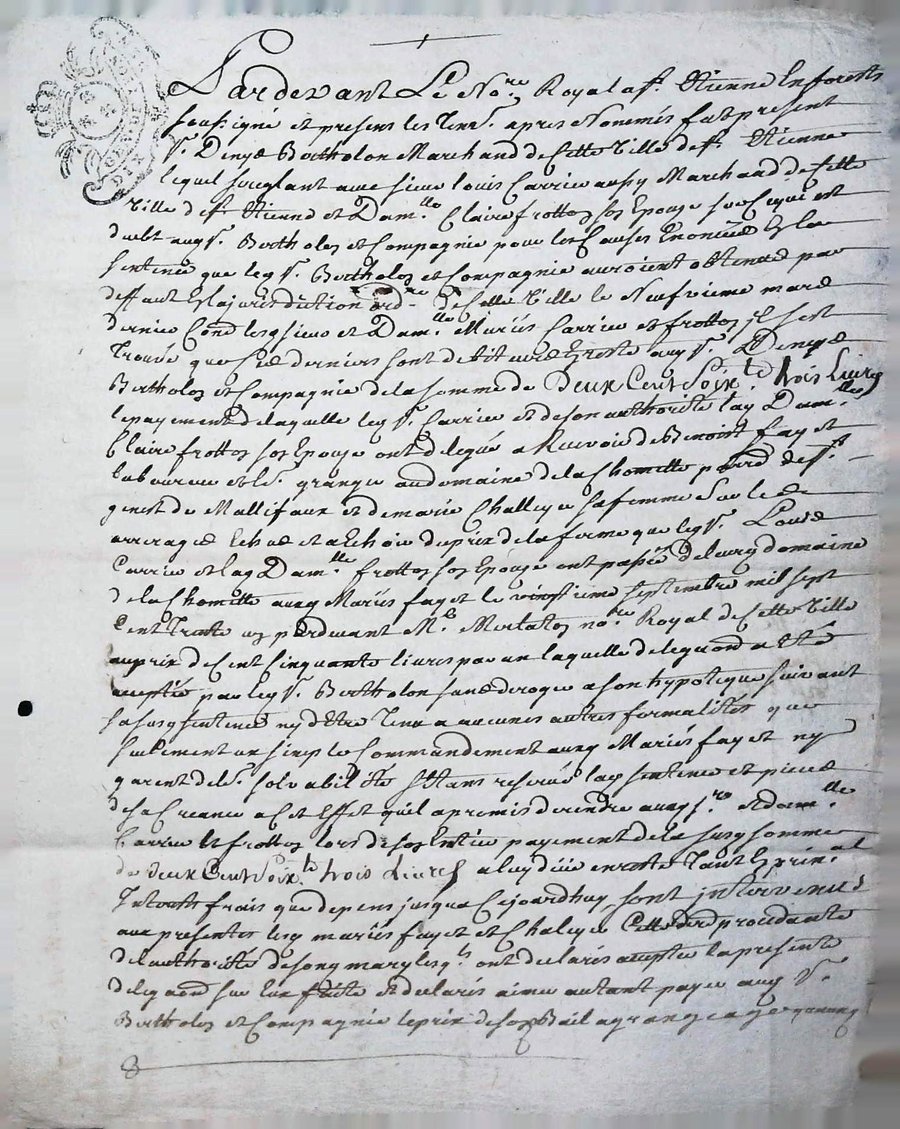 Pardevant Le No.re Royal a st. Etienne En forests
soussigné et presens les Tem.s apres Nommés fut present
s.r Denys Bertholon Marchand de Cette Ville de st. Etienne
lequel avec sieur louis Carrier aussy Marchand de Cette
Ville de st. Etienne et Dam.lle Claire frotton son Epouse sur Ce qui est
deubt auxq s.r Bertholon et Compagnie pour les Causes Enoncées Es la
sentence que leq s.r Bertholon et Compagnie auroient obtenue par
deffaut Es la jurisdiction ord.re de Cette Ville le Neufvieme mars
dernier Cond lesq sieur et Dam.lle Mariés Carrier et frotton jl s'est
Trouvé que Ces derniers sont de reste auxq s.r Denys
Bertholon et Compagnie de la somme de Deux Cent Soix.te trois Livres
le payement de laquelle leq s.r Carrier et de son authorité laq Dam.lle
Claire frotton son Epouse ont delegué a Recevoir de Benoist fayet
laboureur et granger au domaine de la Chomette parr.e de st.
genest de Mallifaux et de marie Challeye sa femme Sur les
arrerages Echus et a Echoir du prix de la ferme que leq s.r Louis
Carrier et laq Dam.lle frotton son Epouse ont passée de leurq domaine
de la Chomette auxq Mariés fayet le vingtieme septembre mil sept
Cent Trente un pardevant M.e no.re Royal de Cette Ville
au prix de Cent Cinquante livres par an laquelle delegaon a Eté
aceptée par leq s.r Bertholon sans deroger a son hypoteque suivant
sa susq sentence ny d'Etre Tenu a aucunes autres formalités que
seulement un simple Commandement auxq Mariés fayet ny
garent de leur solvabilité S'Etant reservé laq sentence et pieces
de sa Creance a Cet Effet qu'il a promis de rendre auxq s.r et dam.lle
Carrier et frotton lors de son Entier payement de la susq somme
de deux Cent Soix.te trois Livres a luy düe en reste Tant En prin.al
Interests frais que depens jusqua Cejourdhuy sont jntervenus
aux presentes lesq mariés fayet et Chaleye Cette der.e procedante
de l'authorité de sonq mary lesq.ls ont declarés accepter la presente
delegaon sur Eux faite et declarés aimer autant payer auxq s.r
Bertholon et Compagnie le prix de son Bail a grangeage